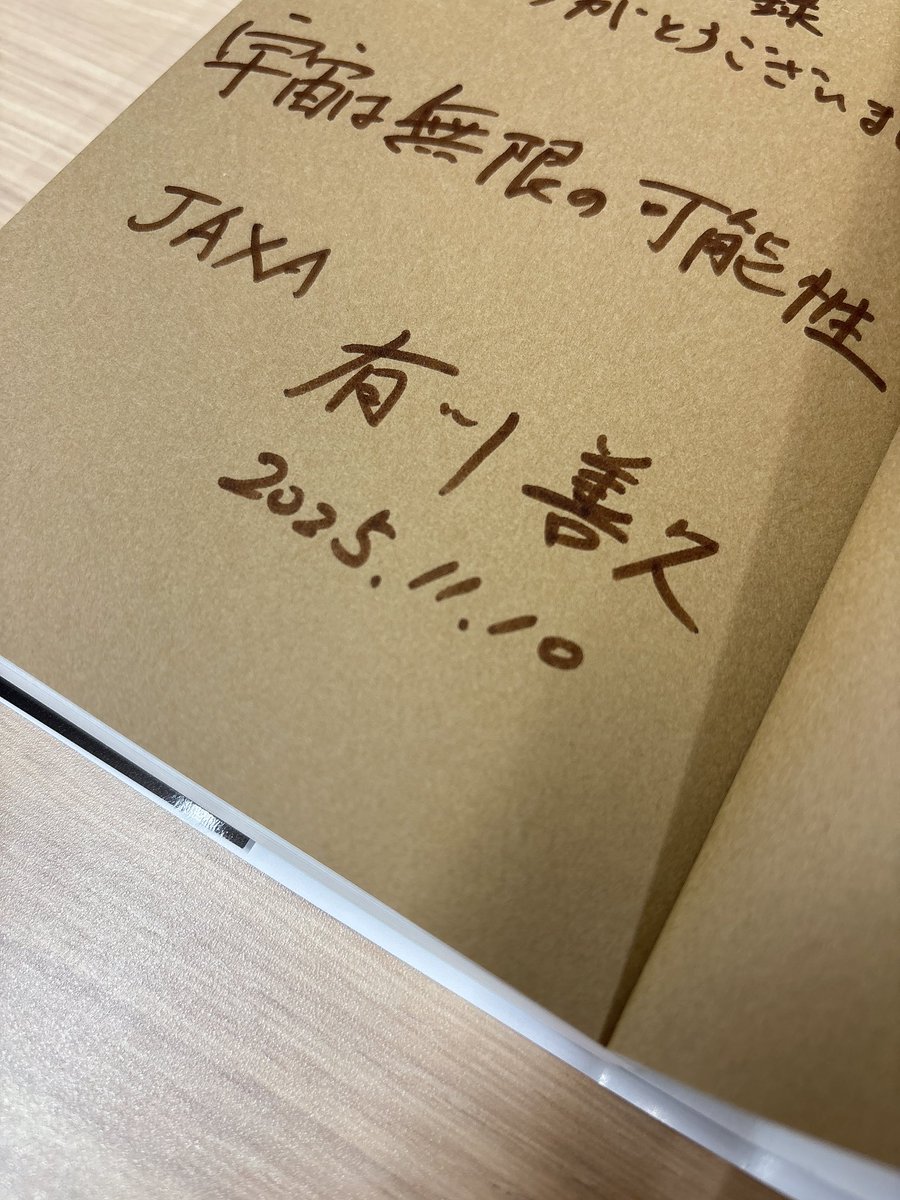 録
ありがとうございま
宇宙は無限の可能性
JAXA
有川 善久
2025.11.10